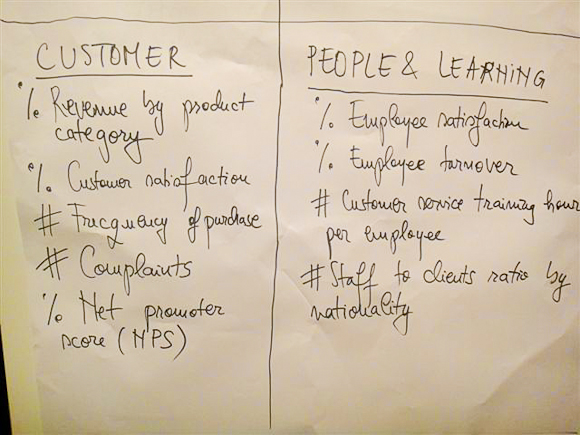 CUSTOMER
% Revenue by product
category
% Customer satisfaction
# Frecquency of purchase
# Complaints
% Net promoter
score (NPS)
PEOPLE & LEARNING
% Employee satisfaction
% Employee turnover
# Customer service training hour
per employee
# Staff to clients ratio by
nationality